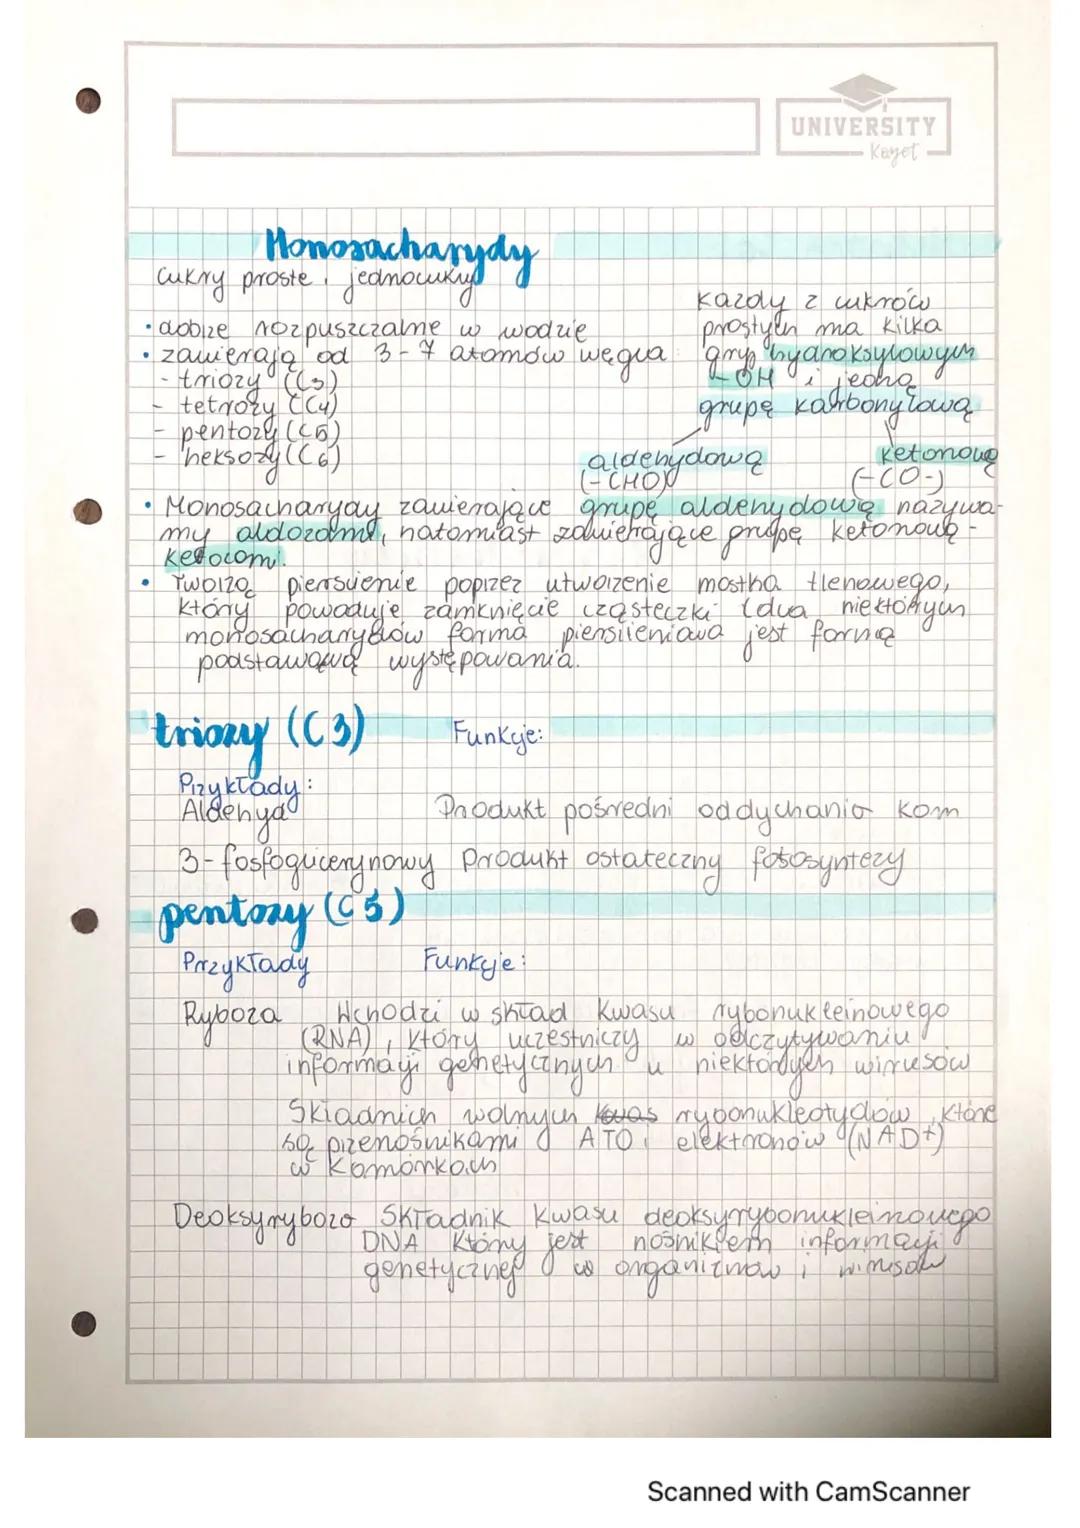 UNIVERSITY
Kayet
Monosacharydy
cukry proste, jednocukry
• dobrze rozpuszczalne w wodzie
• zawierają od 3-7 atomów węgla
- triozy (C3)
- tetrozy (C4)
- pentozy (C5)
- heksozy (C6)
Każdy z cukrów
prostych ma kilka
grup hydroksylowych
-OH i jedną
grupę karbonylową
aldehydową ketonową
(-CHO) (-CO-)
• Monosacharydy zawierające grupę aldehydową nazywa-
my aldozami, natomiast zawierające grupę ketonową -
ketocomi.
• Tworzą pierścienie poprzez utworzenie mostka tlenowego,
który powoduje zamknięcie cząsteczki (dla niektórych
monosacharydów forma pierścieniowa jest formą
podstawową występowania.
triozy (C3) Funkcje:
Przykłady:
Aldehyd Produkt pośredni oddychania kom
3-fosfoglicerynowy Produkt ostateczny fotosyntezy
pentozy (C5)
Przykłady Funkcje:
Ryboza Wchodzi w skład kwasu rybonukleinowego
(RNA), który uczestniczy w odczytywaniu
informacji genetycznych u niektórych wirusów
Składnich wolnych kwas rybonukleotydów, które
są przenośnikami ATO i elektronów (NAD+)
w komórkach
Deoksyryboza Składnik kwasu deoksyrybonukleinowego
DNA który jest nośnikiem informacji
genetycznej w organizmów i wirusów
Scanned with CamScanner